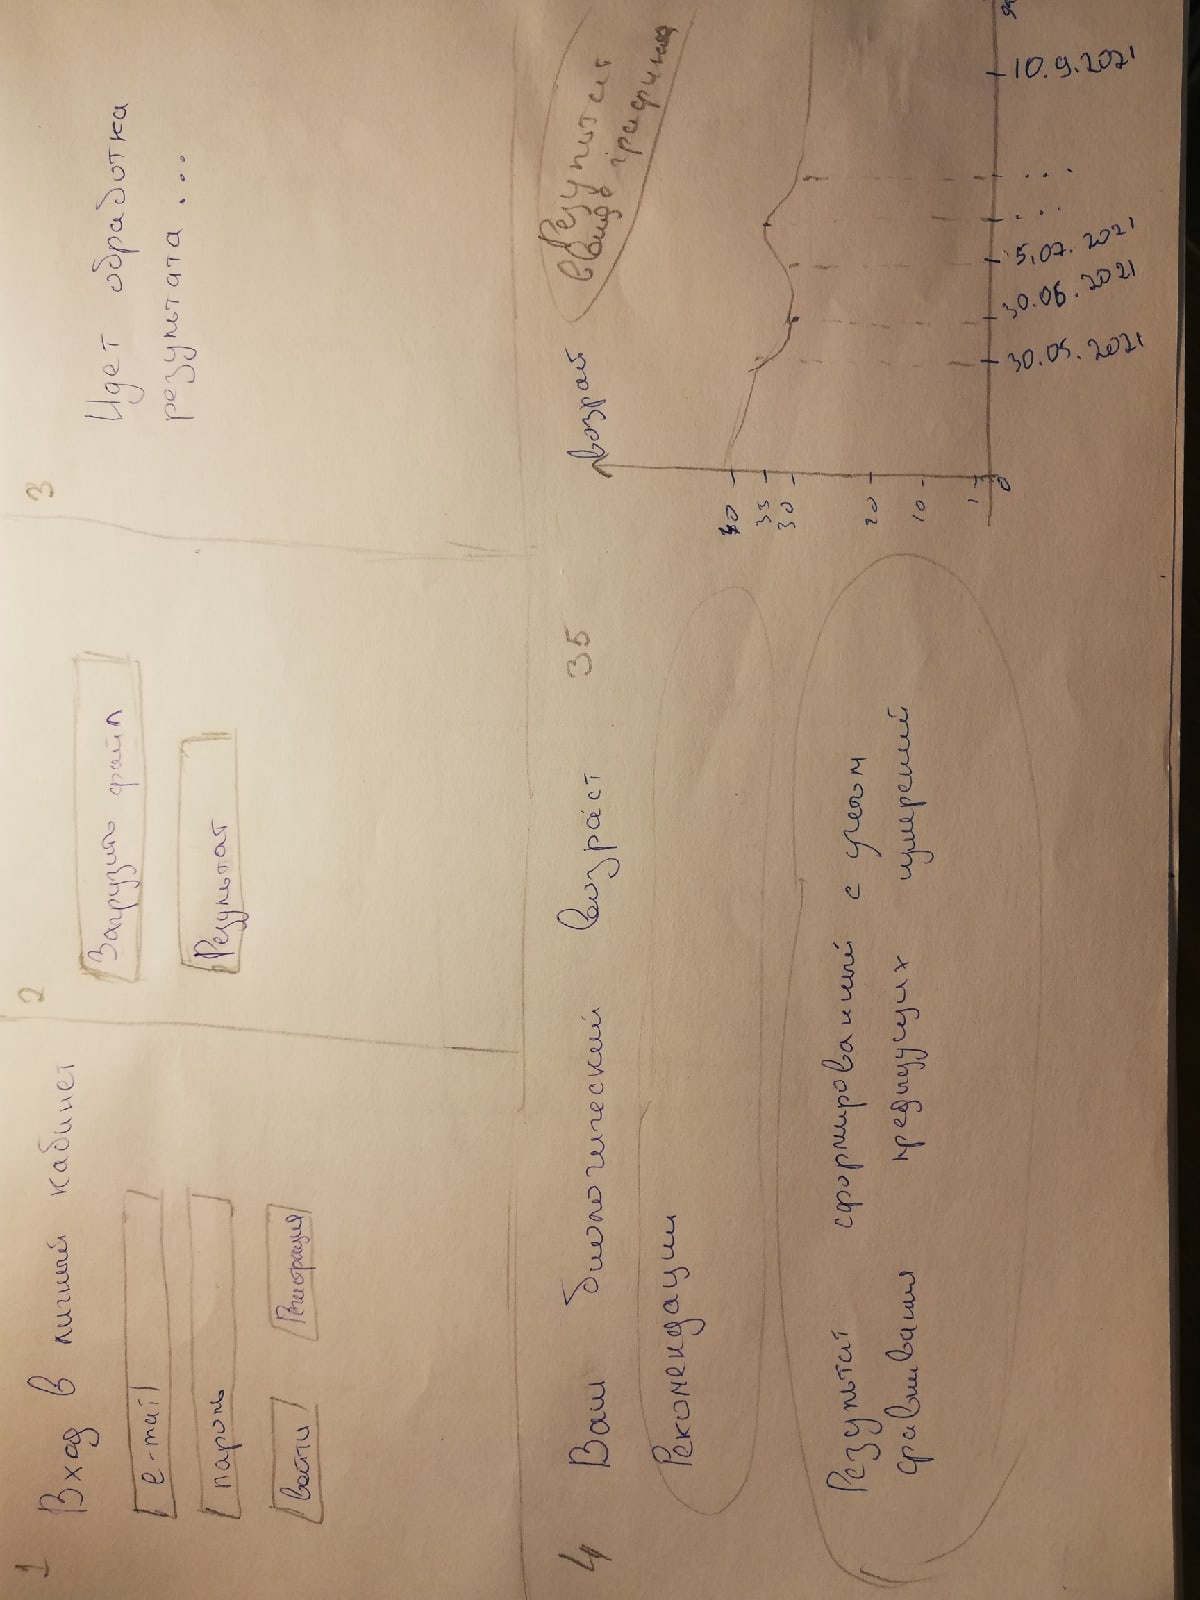 1
Вход в личный кабинет
e-mail
пароль
войти
Регистрация
2
Загрузить файл
Результат
3
Идет обработка
результата ...
4
Ваш биологический возраст 35
Рекомендации
Результат сформированный с учетом
сравнивания предыдущих измерений
возраст
Результат
в виде графика
40
35
30
20
10
1
0
30.05.2021
30.06.2021
15.07.2021
...
...
10.9.2021